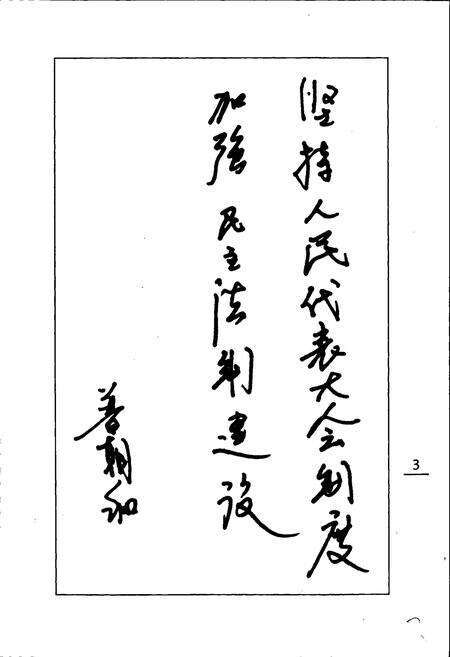 坚持人民代表大会制度
加強民主法制建设
普朝和
3